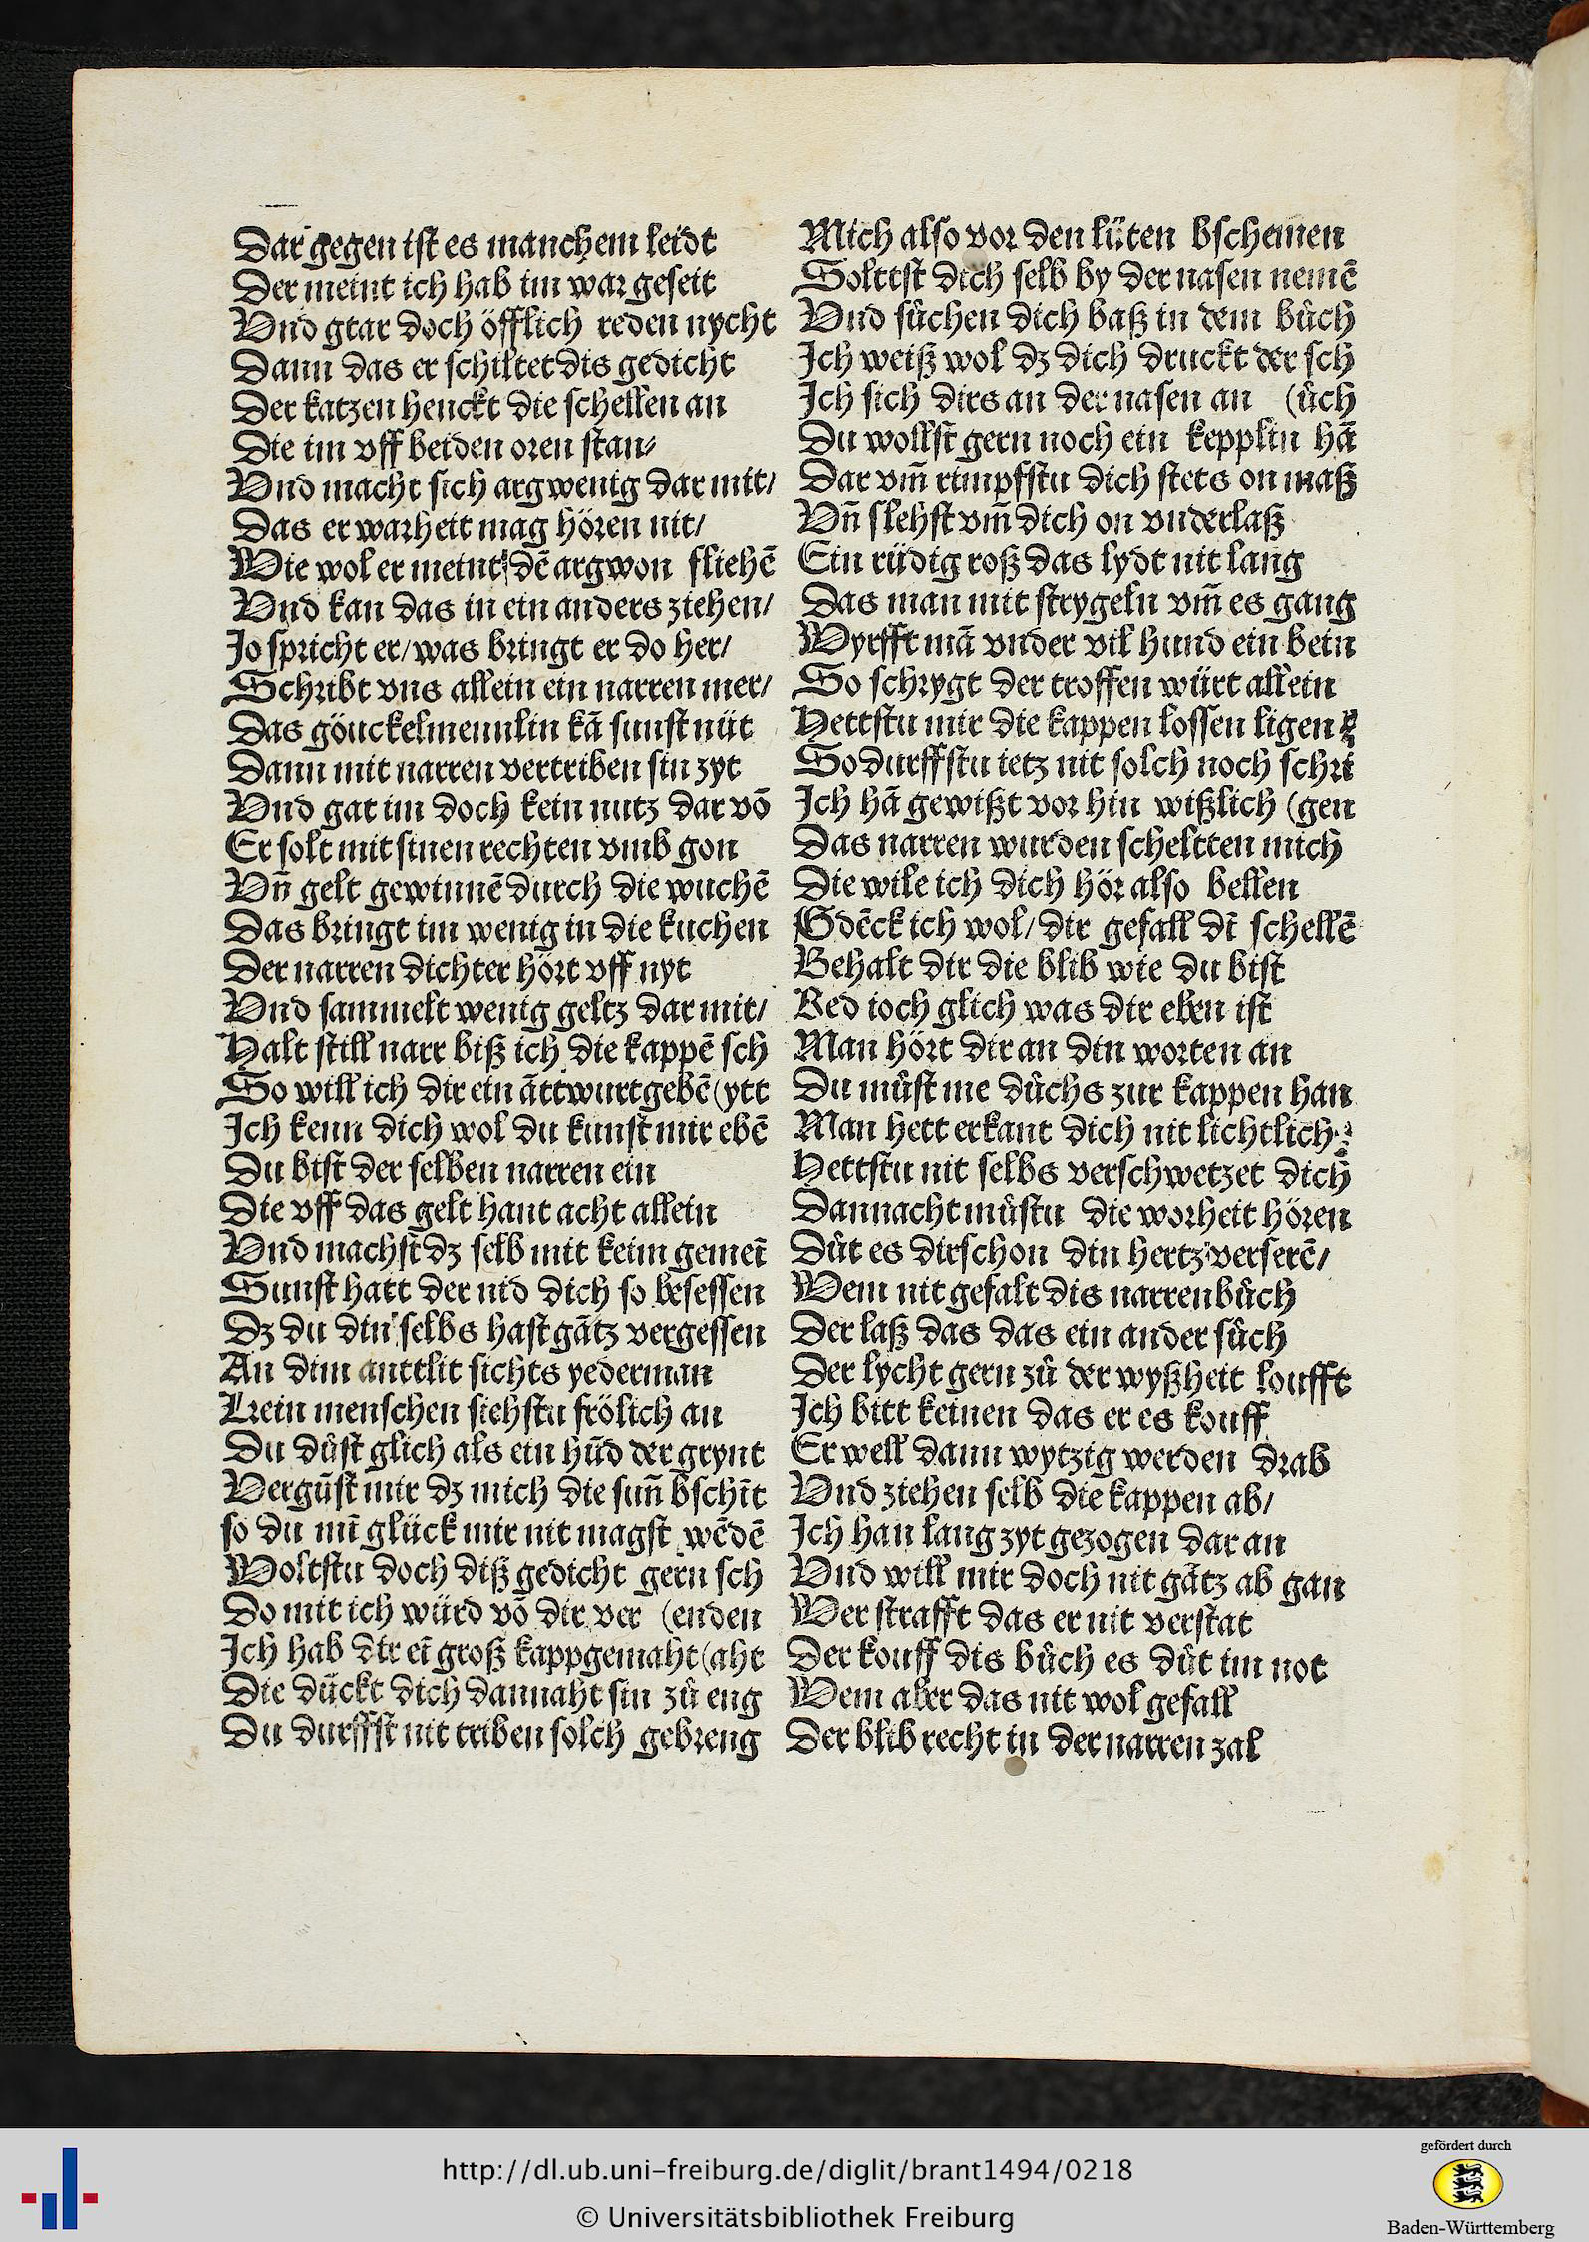 Dar gegen ist es manchem leidt
Der meint ich hab im war geseit
Vnd gtar doch öfflich reden nycht
Dann das er schiltet dis gedicht
Der katzen henckt die schellen an
Die im vff beiden oren stan⸗
Vnd macht sich argwenig dar mit/
Das er warheit mag hören nit/
Wie wol er meint dē argwon fliehē
Vnd kan das in ein anders ziehen/
Jo spricht er/was bringt er do her/
Schribt vns allein ein narren mer/
Das göuckelmennlin kā sunst nüt
Dann mit narren vertriben sin zyt
Vnd gat im doch kein nutz dar vō
Er solt mit sinen rechten vmb gon
Vn̄ gelt gewinnē durch die wuchē
Das bringt im wenig in die kuchen
Der narren dichter hört vff nyt
Vnd sammelt wenig geltz dar mit/
Halt still narr biß ich die kappē sch
So will ich dir ein āttwurt gebē (ytt
Ich kenn dich wol du kunst mir ebē
Du bist der selben narren ein
Die vff das gelt hant acht allein
Vnd machst dz selb mit keim gemeī
Sunst hatt der nid dich so besessen
Dz du din selbs hast gātz vergessen
An dim anttlit sichts yederman
Kein menschen siehstu frölich an
Du důst glich als ein hūd der grynt
Vergūst mir dz mich die sun̄ bschīt
so du mī glück mir nit magst wēdē
Woltstu doch diß gedicht gern sch
Do mit ich würd vō dir ver (enden
Ich hab dir eī groß kapp gemaht (aht
Die dückt dich dannaht sin zů eng
Du durffst nit triben solch gebreng
Mich also vor den lüten bscheinen
Solttst dich selb by der nasen nemē
Vnd sůchen dich baß in dem bůch
Ich weiß wol dz dich druckt der sch
Ich sich dirs an der nasen an (ůch
Du wollst gern noch ein kepplin hā
Dar vm̄ rimpfstu dich stets on maß
Vn̄ slehst vm̄ dich on vnderlaß
Ein rüdig roß das lydt nit lang
Das man mit strygeln vm̄ es gang
Wyrfft mā vnder vil hund ein bein
So schrygt der troffen würt allein
Hettstu mir die kappen lossen ligen
So durffstu ietz nit solch noch schri
Ich hā gewißt vor hin wißlich (gen
Das narren wurden scheltten mich
Die wile ich dich hör also bellen
Gdēck ich wol/dir gefall dī schellē
Behalt dir die blib wie du bist
Red ioch glich was dir eben ist
Man hört dir an din worten an
Du můst me důchs zur kappen han
Man hett erkant dich nit lichtlich
Hettstu nit selbs verschwetzet dich
Dannacht můstu die worheit hören
Důt es dir schon din hertz verserē/
Wem nit gefalt dis narrenbůch
Der laß das das ein ander sůch
Der lycht gern zů der wyßheit loufft
Ich bitt keinen das er es kouff
Er well dann wytzig werden drab
Vnd ziehen selb die kappen ab/
Ich han lang zyt gezogen dar an
Vnd will mir doch nit gātz ab gan
Wer strafft das er nit verstat
Der kouff dis bůch es důt im not
Wem aber das nit wol gefall
Der blib recht in der narren zal
http://dl.ub.uni-freiburg.de/diglit/brant1494/0218
© Universitätsbibliothek Freiburg
gefördert durch
Baden-Württemberg